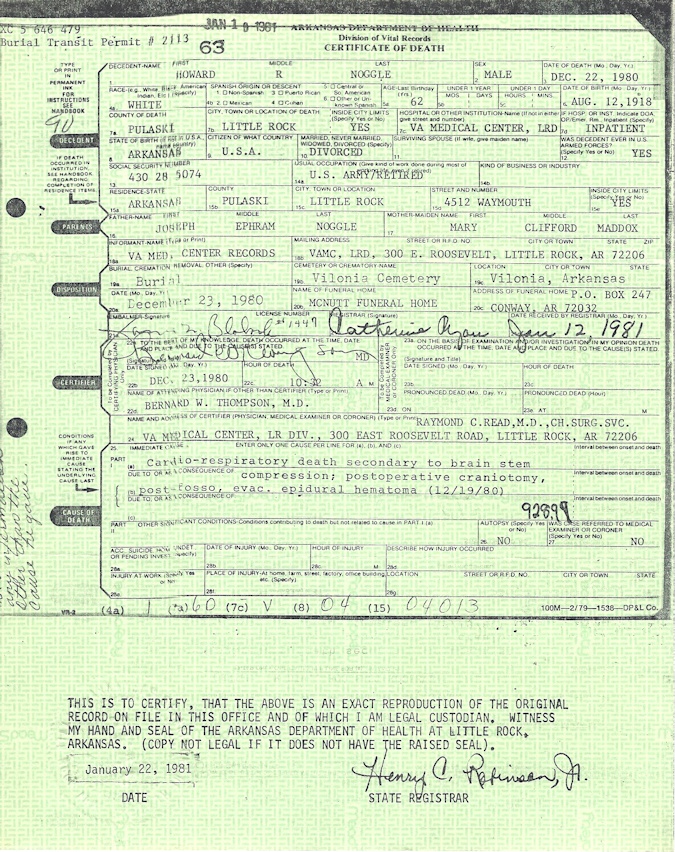 XC 5 646 479
JAN 1 9 1981
ARKANSAS DEPARTMENT OF HEALTH
Burial Transit Permit # 2113
63
Division of Vital Records
CERTIFICATE OF DEATH
TYPE OR PRINT IN PERMANENT INK FOR INSTRUCTIONS SEE HANDBOOK
DECEDENT-NAME FIRST MIDDLE LAST SEX DATE OF DEATH (Mo., Day, Yr.)
HOWARD R NOGGLE MALE DEC. 22, 1980
SPANISH ORIGIN OR DESCENT AGE-Last Birthday (Yrs.) UNDER 1 YEAR UNDER 1 DAY DATE OF BIRTH (Mo., Day, Yr.)
WHITE 62 AUG. 12, 1918
COUNTY OF DEATH CITY, TOWN OR LOCATION OF DEATH INSIDE CITY LIMITS (Specify Yes or No) HOSPITAL OR OTHER INSTITUTION-Name (If not in either, give street and number)
PULASKI LITTLE ROCK YES VA MEDICAL CENTER, LRD INPATIENT
DECEDENT
CITIZEN OF WHAT COUNTRY MARRIED, NEVER MARRIED, WIDOWED, DIVORCED (Specify) SURVIVING SPOUSE (If wife, give maiden name) WAS DECEDENT EVER IN U.S. ARMED FORCES? (Specify Yes or No)
ARKANSAS U.S.A. DIVORCED YES
IF DEATH OCCURRED IN INSTITUTION, SEE HANDBOOK REGARDING COMPLETION OF RESIDENCE ITEMS
SOCIAL SECURITY NUMBER USUAL OCCUPATION KIND OF BUSINESS OR INDUSTRY
430 28 5074 U.S. ARMY/RETIRED
RESIDENCE-STATE COUNTY CITY, TOWN OR LOCATION STREET AND NUMBER INSIDE CITY LIMITS
ARKANSAS PULASKI LITTLE ROCK 4512 WAYMOUTH YES
PARENTS
FATHER-NAME FIRST MIDDLE LAST MOTHER-MAIDEN NAME FIRST MIDDLE LAST
JOSEPH EPHRAM NOGGLE MARY CLIFFORD MADDOX
INFORMANT-NAME (Type or Print) MAILING ADDRESS STREET OR R.F.D. NO. CITY OR TOWN STATE ZIP
VA MED. CENTER RECORDS VAMC, LRD, 300 E. ROOSEVELT, LITTLE ROCK, AR 72206
BURIAL, CREMATION, REMOVAL, OTHER (Specify) CEMETERY OR CREMATORY NAME LOCATION CITY OR TOWN STATE
Burial Vilonia Cemetery Vilonia, Arkansas
DISPOSITION
DATE (Mo., Day, Yr.) NAME OF FUNERAL HOME ADDRESS OF FUNERAL HOME P.O. BOX 247
December 23, 1980 MCNUTT FUNERAL HOME CONWAY, AR 72032
EMBALMER-Signature LICENSE NUMBER REGISTRAR (Signature) DATE RECEIVED BY REGISTRAR (Mo., Day, Yr.)
#1947 Catherine Ryan Jan 12, 1981
MD
CERTIFIER
DATE SIGNED (Mo., Day, Yr.) HOUR OF DEATH DATE SIGNED (Mo., Day, Yr.) HOUR OF DEATH
DEC. 23,1980 10:32 A. M
NAME OF ATTENDING PHYSICIAN IF OTHER THAN CERTIFIER (Type or Print) PRONOUNCED DEAD (Mo., Day, Yr.) PRONOUNCED DEAD (Hour)
BERNARD W. THOMPSON, M.D.
NAME AND ADDRESS OF CERTIFIER (PHYSICIAN, MEDICAL EXAMINER OR CORONER) (Type or Print) RAYMOND C.READ,M.D.,CH.SURG.SVC.
VA MEDICAL CENTER, LR DIV., 300 EAST ROOSEVELT ROAD, LITTLE ROCK, AR 72206
CONDITIONS IF ANY WHICH GAVE RISE TO IMMEDIATE CAUSE STATING THE UNDERLYING CAUSE LAST
IMMEDIATE CAUSE ENTER ONLY ONE CAUSE PER LINE FOR (a), (b), AND (c). Interval between onset and death
Cardio-respiratory death secondary to brain stem
DUE TO, OR AS A CONSEQUENCE OF: compression; postoperative craniotomy, Interval between onset and death
post-fosso, evac. epidural hematoma (12/19/80)
DUE TO, OR AS A CONSEQUENCE OF: Interval between onset and death
CAUSE OF DEATH
92899
PART II OTHER SIGNIFICANT CONDITIONS-Conditions contributing to death but not related to cause in PART I (a) AUTOPSY (Specify Yes or No) WAS CASE REFERRED TO MEDICAL EXAMINER OR CORONER (Specify Yes or No)
NO NO
DATE OF INJURY (Mo., Day, Yr.) HOUR OF INJURY DESCRIBE HOW INJURY OCCURRED
INJURY AT WORK PLACE OF INJURY-At home, farm, street, factory, office building, etc. (Specify) LOCATION STREET OR R.F.D. NO. CITY OR TOWN STATE
VR-2 (4a) 1 60 (7c) V (8) 04 (15) 04013 100M—2/79—1538—DP&L Co.
THIS IS TO CERTIFY, THAT THE ABOVE IS AN EXACT REPRODUCTION OF THE ORIGINAL
RECORD ON FILE IN THIS OFFICE AND OF WHICH I AM LEGAL CUSTODIAN. WITNESS
MY HAND AND SEAL OF THE ARKANSAS DEPARTMENT OF HEALTH AT LITTLE ROCK,
ARKANSAS. (COPY NOT LEGAL IF IT DOES NOT HAVE THE RAISED SEAL).
January 22, 1981 Henry C. Robinson, Jr.
DATE STATE REGISTRAR